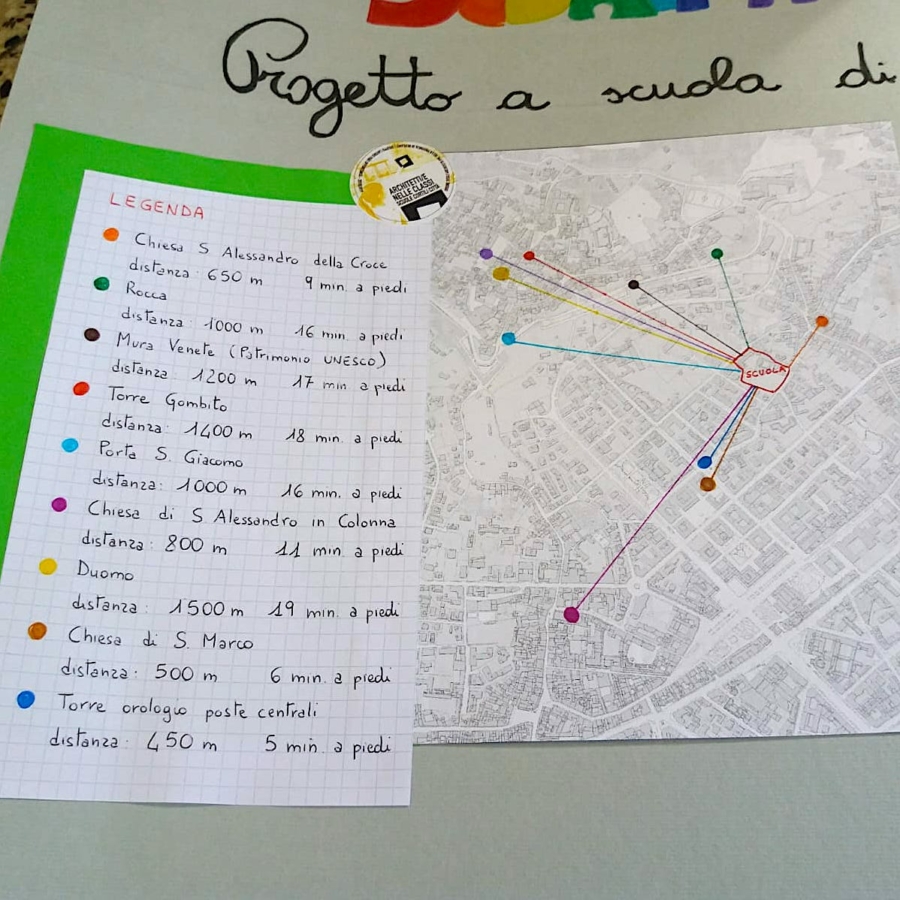 Progetto a scuola di
LEGENDA
Chiesa S Alessandro della Croce
distanza: 650 m 9 min. a piedi
Rocca
distanza: 1000 m 16 min. a piedi
Mura Venete (Patrimonio UNESCO)
distanza: 1200 m 17 min a piedi
Torre Gombito
distanza: 1400 m 18 min. a piedi
Porta S. Giacomo
distanza: 1000 m 16 min. a piedi
Chiesa di S Alessandro in Colonna
distanza: 800 m 11 min a piedi
Duomo
distanza: 1500 m 19 min. a piedi
Chiesa di S. Marco
distanza: 500 m 6 min. a piedi
Torre orologio poste centrali
distanza: 450 m 5 min. a piedi
ARCHITETTIVE
NELLE CLASSI
SCUOLE CORTILI CITTÀ
SCUOLA